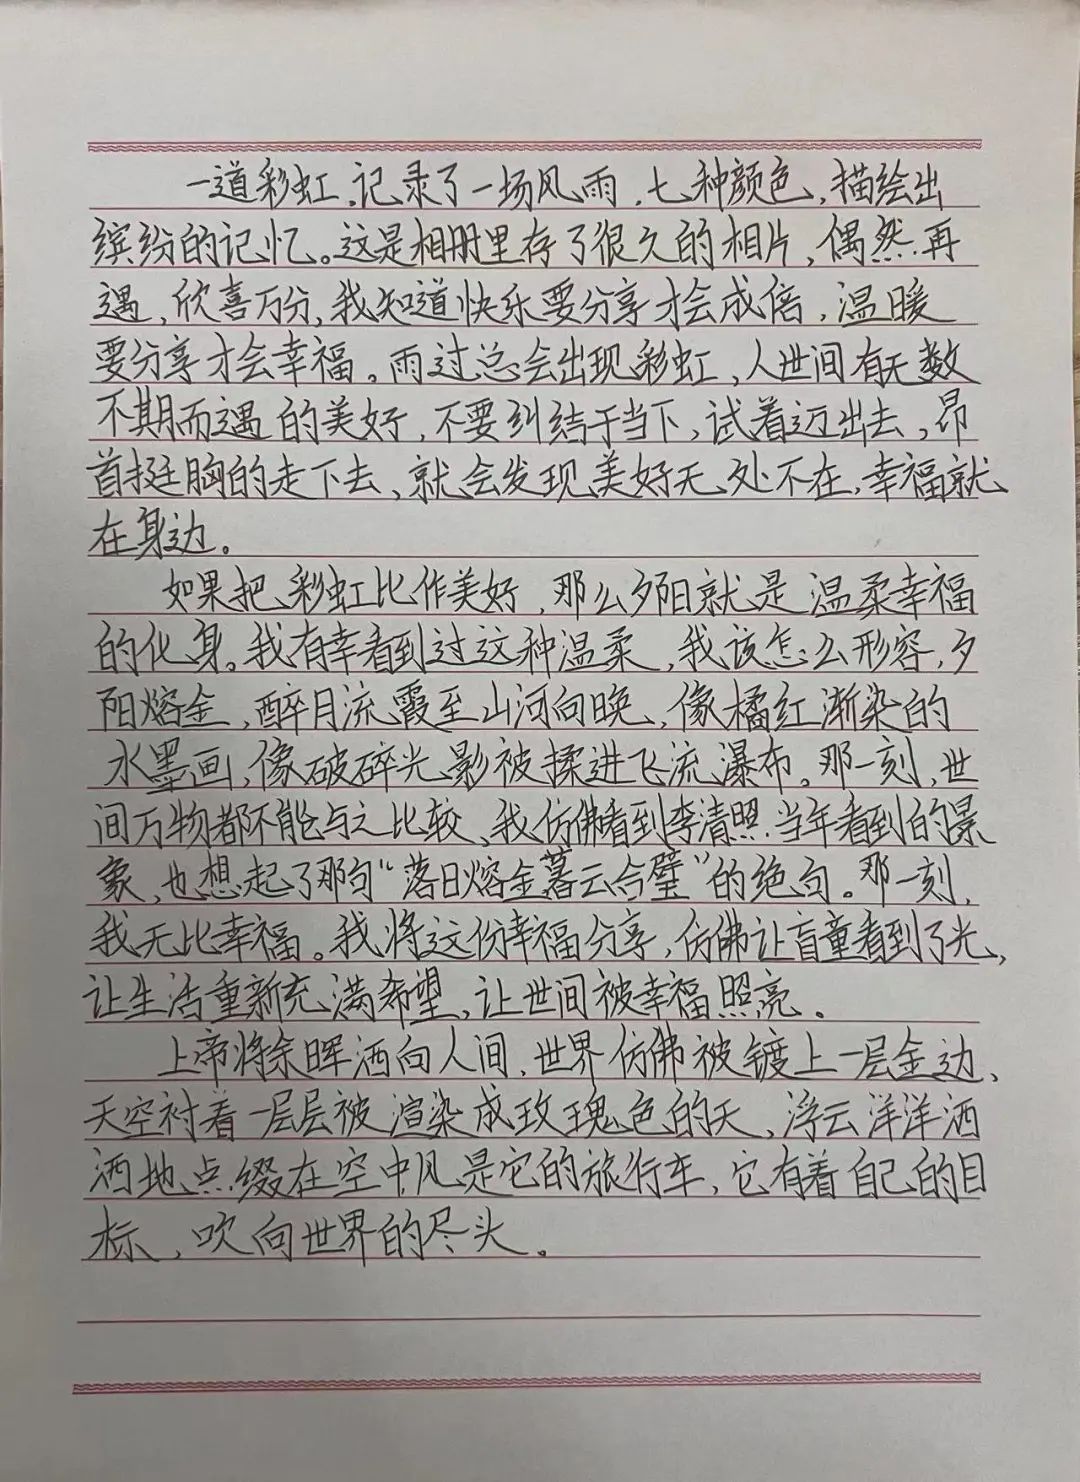 一道彩虹,记录了一场风雨,七种颜色,描绘出
缤纷的记忆。这是相册里存了很久的相片,偶然再
遇,欣喜万分,我知道快乐要分享才会成倍,温暖
要分享才会幸福。雨过总会出现彩虹,人世间有无数
不期而遇的美好,不要纠结于当下,试着迈出去,昂
首挺胸的走下去,就会发现美好无处不在,幸福就
在身边。
如果把彩虹比作美好,那么夕阳就是温柔幸福
的化身。我有幸看到过这种温柔,我该怎么形容,夕
阳熔金,醉月流霞至山河向晚,像橘红渐染的
水墨画,像破碎光影被揉进飞流瀑布。那一刻,世
间万物都不能与之比较,我仿佛看到李清照当年看到的景
象,也想起了那句“落日熔金暮云合璧”的绝句。那一刻,
我无比幸福。我将这份幸福分享,仿佛让盲童看到了光,
让生活重新充满希望,让世间被幸福照亮。
上帝将余晖洒向人间,世界仿佛被镀上一层金边,
天空衬着一层层被渲染成玫瑰色的天,浮云洋洋洒
洒地点缀在空中,风是它的旅行车,它有着自己的目
标,吹向世界的尽头。